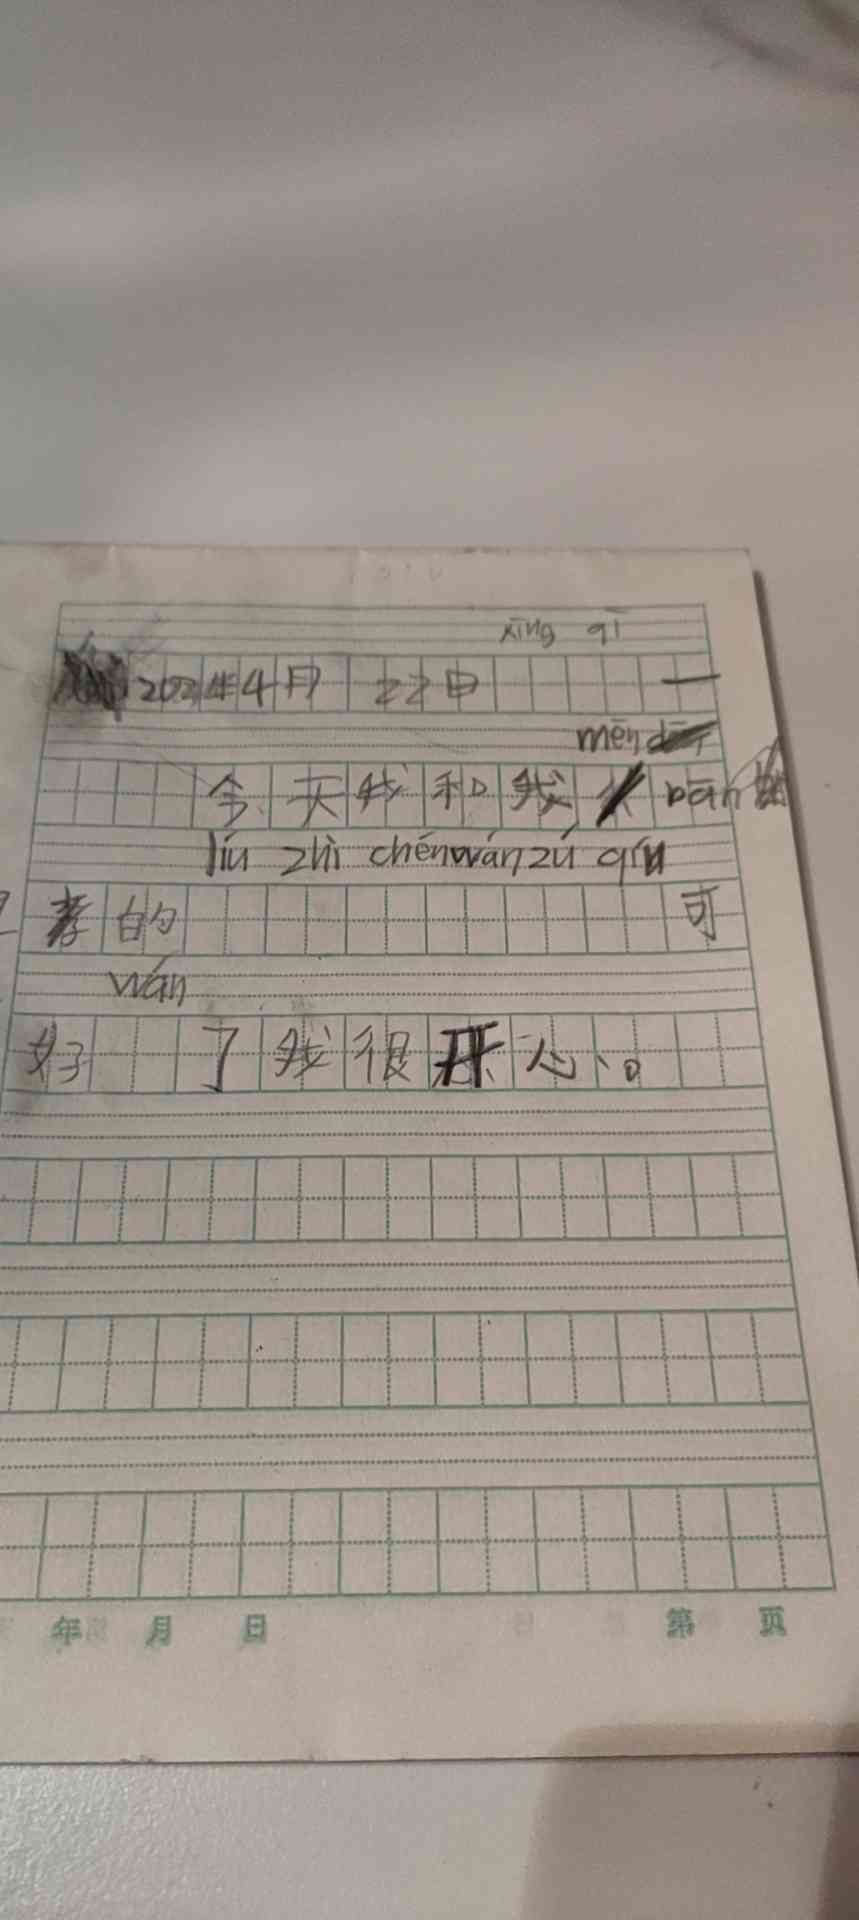 xīng qī
2024年4月 22日 一
mēn
今天我和我 bān
liú zhì chén wán zú qíu
的 可
wán
好 了我很开心。
年 月 日 第 页